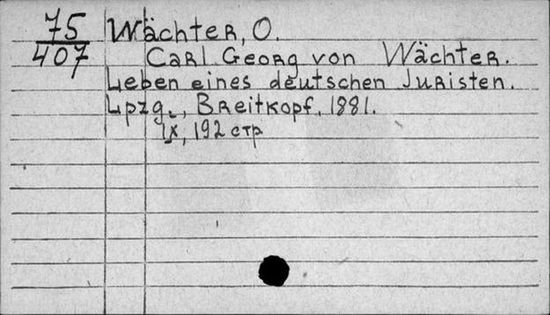 75 Wächter, O.
407 Carl Georg von Wächter.
Leben eines deutschen Juristen.
Lpzg., Breitkopf, 1881.
IX, 192 стр